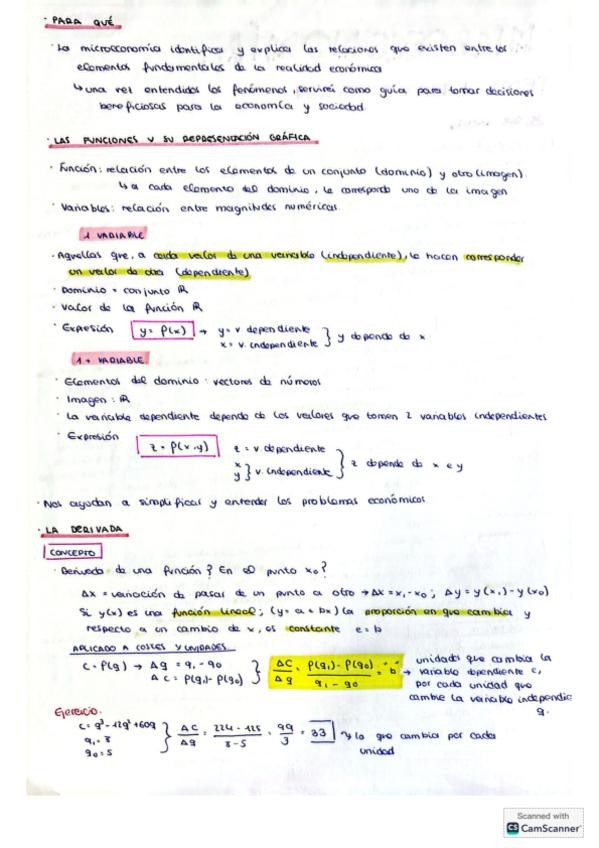 · PARA QUÉ
· La microeconomía identifica y explica las relaciones que existen entre los
elementos fundamentales de la realidad económica
↳ una vez entendidos los fenómenos, servirá como guía para tomar decisiones
beneficiosas para la economía y sociedad.
· LAS FUNCIONES Y SU REPRESENTACIÓN GRÁFICA
· Función: relación entre los elementos de un conjunto (dominio) y otro (imagen).
↳ a cada elemento del dominio, le corresponde uno de la imagen
· Variables: relación entre magnitudes numéricas.
1 VARIABLE
· Aquellas que, a cada valor de una variable (independiente), le hacen corresponder
un valor de otra (dependiente)
· Dominio = conjunto ℝ
· Valor de la función ℝ
· Expresión y = f(x) → y = v dependiente
x = v. independiente } y depende de x
1 + VARIABLE
· Elementos del dominio: vectores de números
· Imagen: ℝ
· La variable dependiente depende de los valores que tomen 2 variables independientes
· Expresión z = f(x,y) z = v. dependiente
x y } v. independiente } z depende de x e y
· Nos ayudan a simplificar y entender los problemas económicos.
· LA DERIVADA
CONCEPTO
· Derivada de una función? En el punto x₀?
Δx = variación de pasar de un punto a otro → Δx = x₁ - x₀ ; Δy = y(x₁) - y(x₀)
Si y(x) es una función lineal; (y = a + bx) la proporción en que cambia y
respecto a un cambio de x, es constante e = b
APLICADO A COSTES Y UNIDADES
C = f(q) → Δq = q₁ - q₀
ΔC = f(q₁) - f(q₀) } ΔC/Δq = f(q₁) - f(q₀) / q₁ - q₀ = "b" → unidades que cambia la
variable dependiente c,
por cada unidad que
cambie la variable independie
q.
Ejercicio.
C = q³ - 12q² + 60q
q₁ = 3
q₀ = 5 } ΔC/Δq = 224 - 125 / 3 - 5 = 99/3 = 33 → lo que cambia por cada
unidad
Scanned with
CS CamScanner